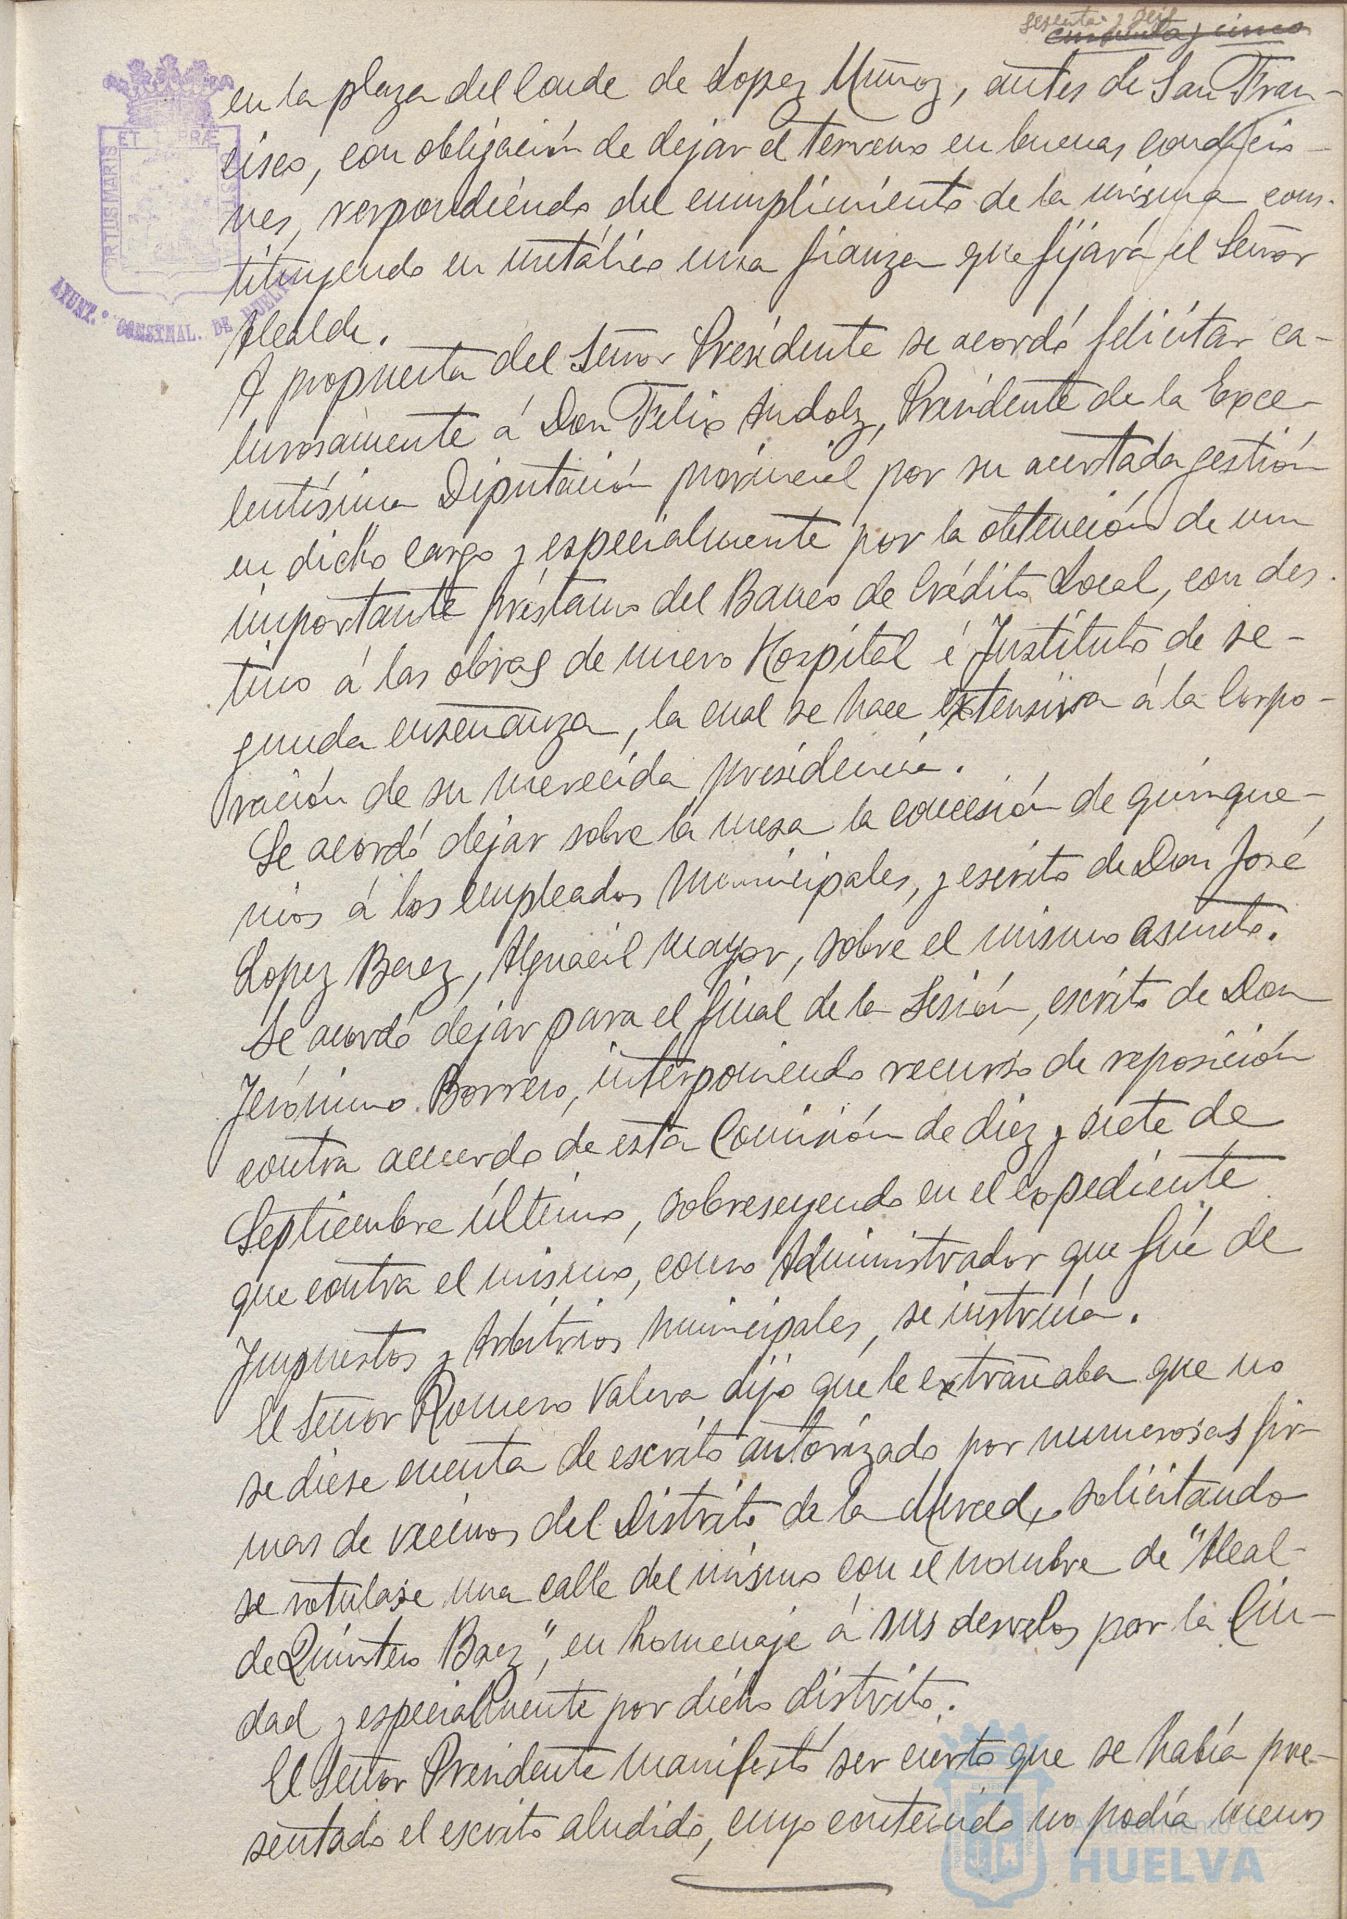 sesenta y seis
cincuenta y cinco
en la plaza del Conde de Lopez Muñoz, antes de San Fran-
cisco, con obligación de dejar el terreno en buenas condicio-
nes, respondiendo del cumplimiento de la misma cons-
tituyendo en metálico una fianza que fijará el Señor
Alcalde.
A propuesta del Señor Presidente se acordó felicitar ca-
lurosamente á Don Felix Andolz, Presidente de la Exce-
lentísima Diputación provincial por su acertada gestión
en dicho cargo y especialmente por la obtención de un
importante préstamo del Banco de Crédito Local, con des-
tino á las obras de nuevo Hospital é Instituto de se-
gunda enseñanza, la cual se hace extensiva á la Corpo-
ración de su merecida presidencia.
Se acordó dejar sobre la mesa la concesión de quinque-
nios á los empleados municipales, y escrito de Don José
Lopez Baez, Alguacil mayor, sobre el mismo asunto.
Se acordó dejar para el final de la Sesión, escrito de Don
Jerónimo Borrero, interponiendo recurso de reposición
contra acuerdo de esta Comisión de diez y siete de
Septiembre último, sobreseyendo en el expediente
que contra el mismo, como Administrador que fué de
Impuestos y Arbitrios municipales, se instruía.
El Señor Romero Valera dijo que le extrañaba que no
se diese cuenta de escrito autorizado por numerosas fir-
mas de vecinos del Distrito de la Merced, solicitando
se rotulase una calle del mismo con el nombre de "Alcal-
de Quintero Baez", en homenaje á sus desvelos por la Ciu-
dad y especialmente por dicho distrito.
El Señor Presidente manifestó ser cierto que se había pre-
sentado el escrito aludido, cuyo contenido no podía menos
AYUNT.º CONSTNAL. DE HUELVA
Ayuntamiento de
HUELVA